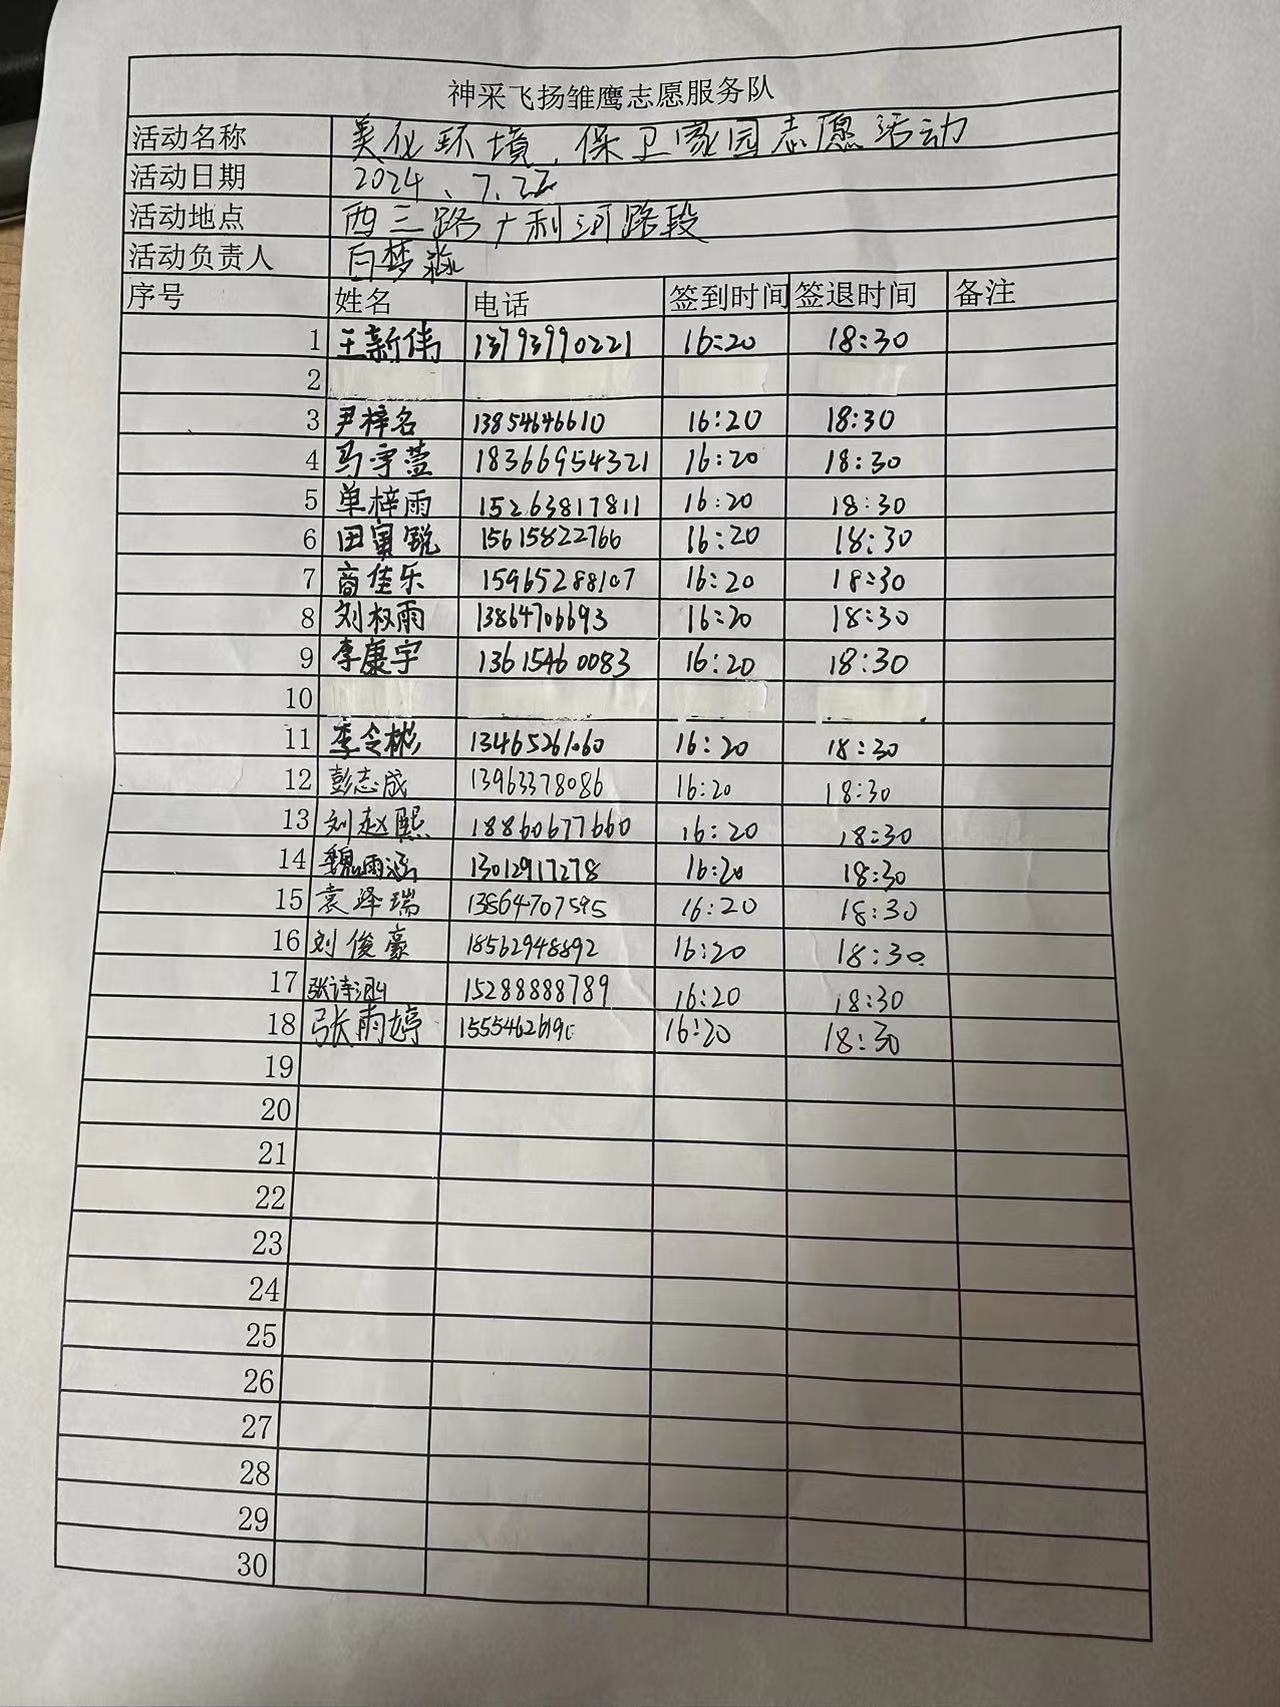 神采飞扬雏鹰志愿服务队
活动名称 美化环境,保卫家园志愿活动
活动日期 2024、7.22
活动地点 西三路广利河路段
活动负责人 白梦淼
序号 姓名 电话 签到时间 签退时间 备注
1 王新伟 13793990221 16:20 18:30
2
3 尹梓名 13854646610 16:20 18:30
4 马宇萱 18366954321 16:20 18:30
5 单梓雨 15263817811 16:20 18:30
6 田寅锐 15615822766 16:20 18:30
7 商佳乐 15965288107 16:20 18:30
8 刘权雨 13864706693 16:20 18:30
9 李康宇 13615460083 16:20 18:30
10
11 李令彬 13465261060 16:20 18:30
12 彭志成 13963378086 16:20 18:30
13 刘赵熙 18860677660 16:20 18:30
14 魏雨涵 13012917278 16:20 18:30
15 袁泽瑞 13864707595 16:20 18:30
16 刘俊豪 18562948892 16:20 18:30
17 张诗涵 15288888789 16:20 18:30
18 张雨婷 16:20 18:30
19
20
21
22
23
24
25
26
27
28
29
30